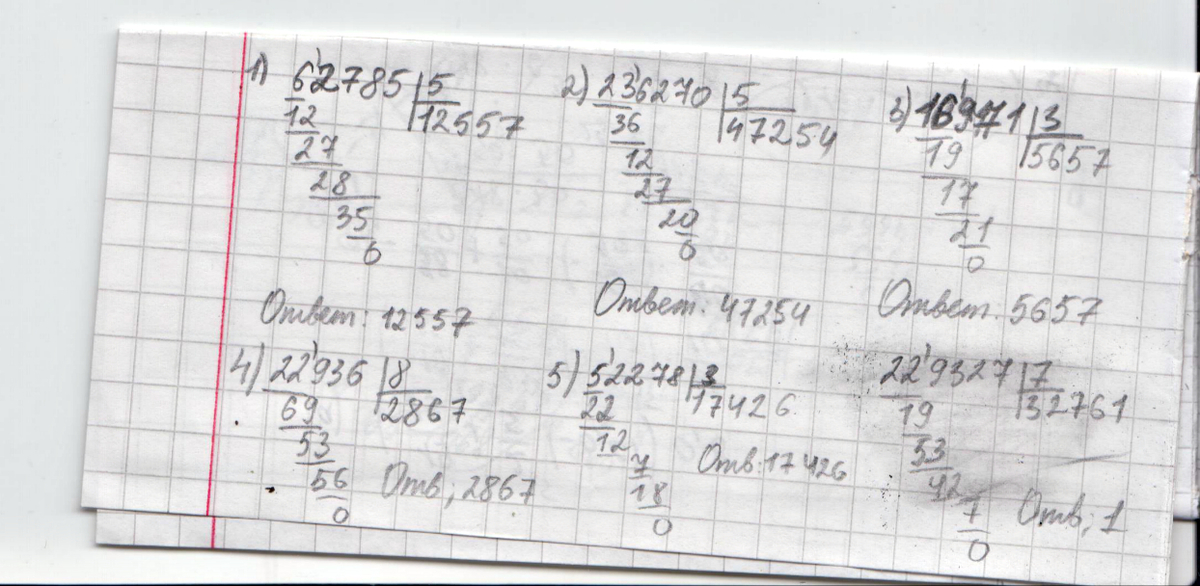 1) 62'785 | 5
12 12557
27
28
35
0
Ответ: 12557
2) 23'6270 | 5
36 47254
12
27
20
0
Ответ: 47254
3) 16'971 | 3
19 5657
17
21
0
Ответ. 5657
4) 22'936 | 8
69 2867
53
56
0
Отв; 2867
5) 5'2278 | 3
22 17426
12
7
18
0
Отв: 17426
22'9327 | 7
19 32761
53
42
7
0
Отв; 1